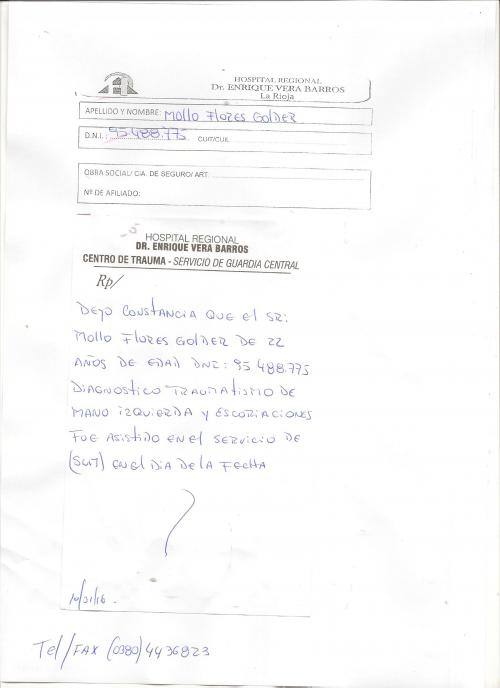 HOSPITAL REGIONAL
Dr. ENRIQUE VERA BARROS
La Rioja
APELLIDO Y NOMBRE: Mollo Flores Golder
D.N.I.: 95.488.775 CUIT/CUIL
OBRA SOCIAL/ CIA. DE SEGURO/ ART.
Nº DE AFILIADO:
HOSPITAL REGIONAL
DR. ENRIQUE VERA BARROS
CENTRO DE TRAUMA - SERVICIO DE GUARDIA CENTRAL
Rp/
DEJO CONSTANCIA QUE EL SR:
Mollo Flores Golder DE 22
AÑOS DE EDAD DNI: 95 488.775
DIAGNOSTICO TRAUMATISMO DE
MANO IZQUIERDA Y ESCORIACIONES
FUE ASISTIDO EN el SERVICIO DE
(SGT) EN el DIA DE LA FECHA
10/01/16.
Tel/FAX (0380) 4436823